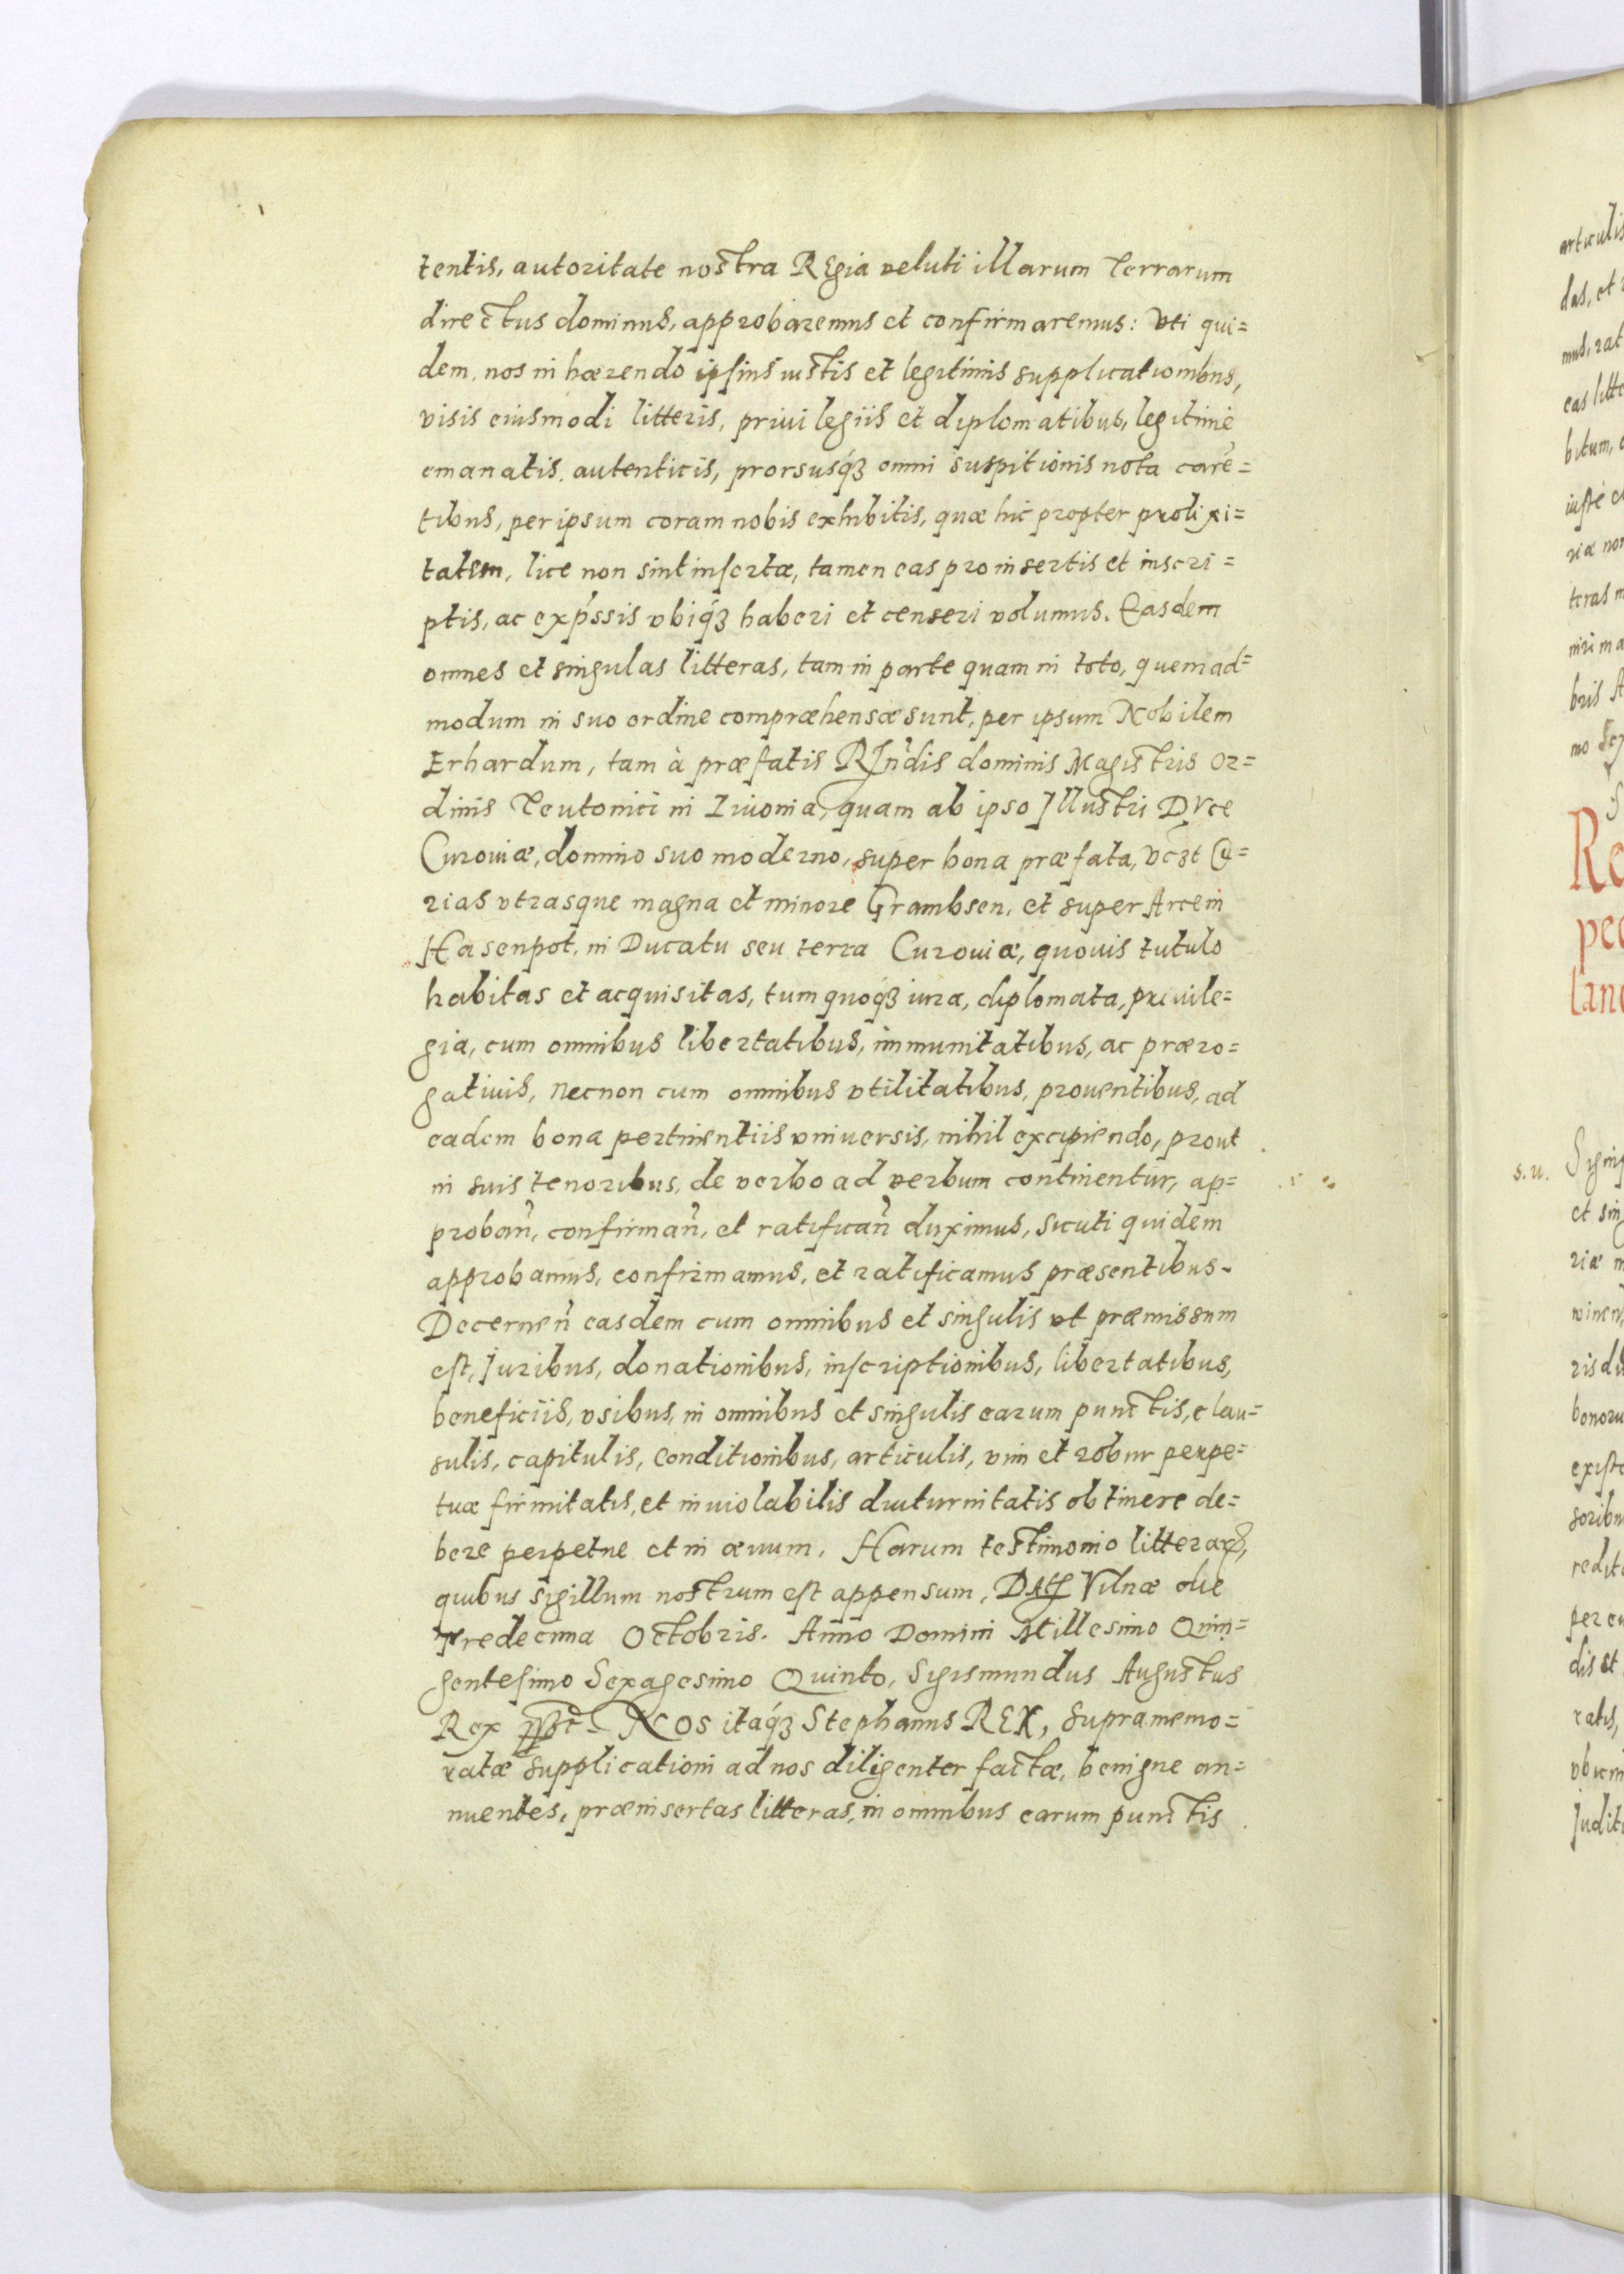 tentis, autoritate nostra REgia veluti illarum Terrarum
directus dominus, approbaremus et confirmaremus: Vti qui=
dem, nos in hærendo ipsius iustis et legitimis supplicationibus,
visis eiusmodi litteris, priuilegiis et diplomatibus, legitimè
emanatis, autenticis, prorsusq́ꝫ omni suspitionis nota carē=
tibus, per ipsum coram nobis exhibitis, quæ hic propter prolixi=
tatem, lice non sint insertæ, tamen eas pro insertis et inscri=
ptis, ac exp̄ssis vbiq́ꝫ haberi et censeri volumus. Easdem
omnes et singulas litteras, tam in parte quam in toto, quemad=
modum in suo ordine compræhensæ sunt, per ipsum Nobilem
Erhardum, tam à præfatis RĪndis dominis Magistris Or=
dinis Teutonici in Liuonia, quam ab ipso Illustri DVce
Curoniæ, domino suo moderno, super bona præfata, vcꝫt Cu=
rias vtrasque magna et minore Grambsen, et super Arcem
Hasenpot, in Ducatu seu terra Curoniæ, quouis tutulo
habitas et acquisitas, tum quoq́ꝫ iura, diplomata, priuile=
gia, cum omnibus libertatibus, immunitatibus, ac præro=
gatiuis, necnon cum omnibus vtilitatibus, prouentibus, ad
eadem bona pertinentiis vniuersis, nihil excipiendo, prout
in suis tenoribus, de verbo ad verbum continentur, ap=
proban̄, confirman̄, et ratifican̄ duximus, sicuti quidem
approbamus, confirmamus, et ratificamus præsentibus.
Decernen̄ easdem cum omnibus et singulis vt præmissum
est, Juribus, donationibus, inscriptionibus, libertatibus,
beneficiis, vsibus, in omnibus et singulis earum punctis, clau=
sulis, capitulis, conditionibus, articulis, vim et robur perpe=
tuæ firmitatis, et inuiolabilis diuturnitatis obtinere de=
bere perpetue et in æuum. Harum testimonio litteraꝝ,
quibus Sigillum nostrum est appensum, Dat Vilnæ die
Tredecima Octobris. Anno Domini Millesimo Quin=
gentesimo Sexagesimo Quinto, Sigismundus Augustus
Rex NOS itaq́ꝫ Stephanus REX, supramemo=
ratæ supplicationi ad nos diligenter factæ, benigne an=
nuentes, præinsertas litteras, in omnibus earum punctis
s. u.